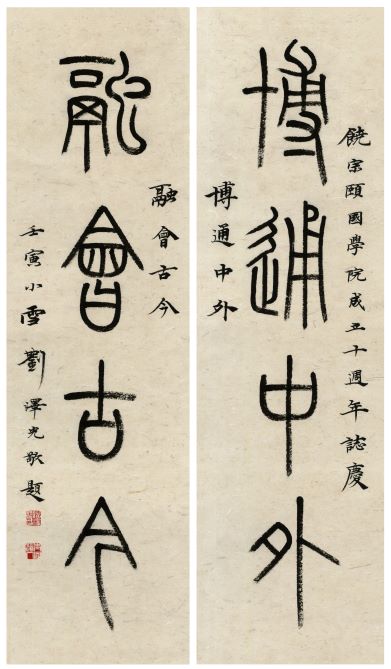 饒宗頤國學院成立十週年誌慶
博通中外
博通中外
融會古今
融會古今
壬寅小雪劉澤光敬題